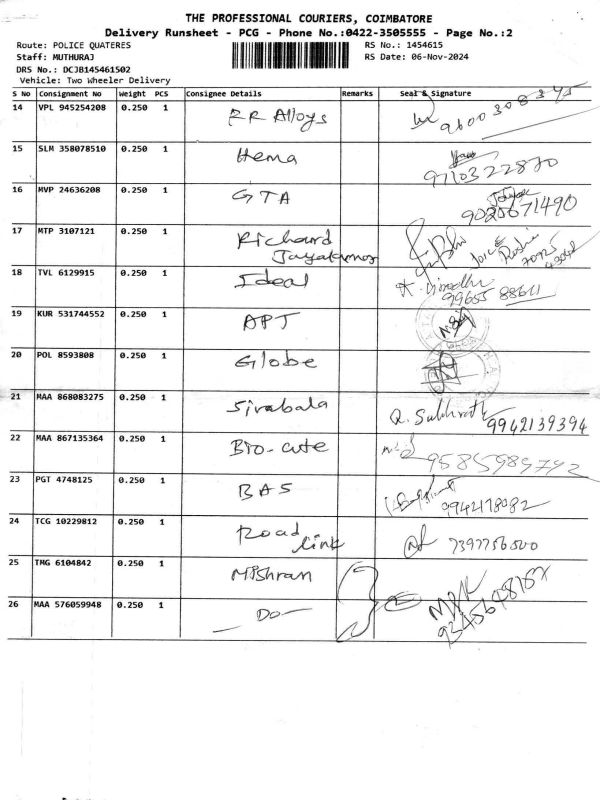 THE PROFESSIONAL COURIERS, COIMBATORE
Delivery Runsheet - PCG - Phone No.:0422-3505555 - Page No.:2
Route: POLICE QUATERES RS No.: 1454615
Staff: MUTHURAJ RS Date: 06-Nov-2024
DRS No.: DCJB145461502
Vehicle: Two Wheeler Delivery
S No Consignment No Weight PCS Consignee Details Remarks Seal & Signature
14 VPL 945254208 0.250 1 RR Alloys
15 SLM 358078510 0.250 1 Hema 9710322870
16 MVP 24636208 0.250 1 GTA
17 MTP 3107121 0.250 1 Richard
18 TVL 6129915 0.250 1 Ideal 99655 88611
19 KUR 531744552 0.250 1 APT
20 POL 8593808 0.250 1 Globe
21 MAA 868083275 0.250 1 Sivabala 9942139394
22 MAA 867135364 0.250 1 Bio-cute 9585989792
23 PGT 4748125 0.250 1 BAS 9942178082
24 TCG 10229812 0.250 1 Road Link 7397756500
25 TMG 6104842 0.250 1 Mishran
26 MAA 576059948 0.250 1 — Do —